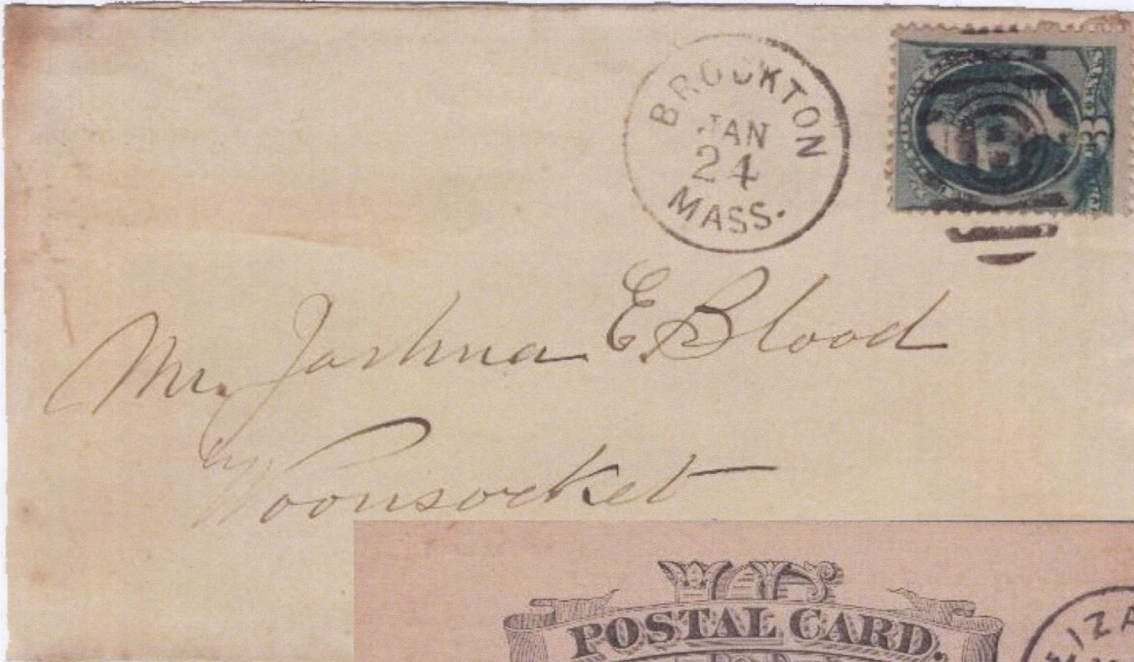 BROCKTON
JAN
24
MASS.
3 CENTS
Mr. Joshua E. Blood
Woonsocket
POSTAL CARD.